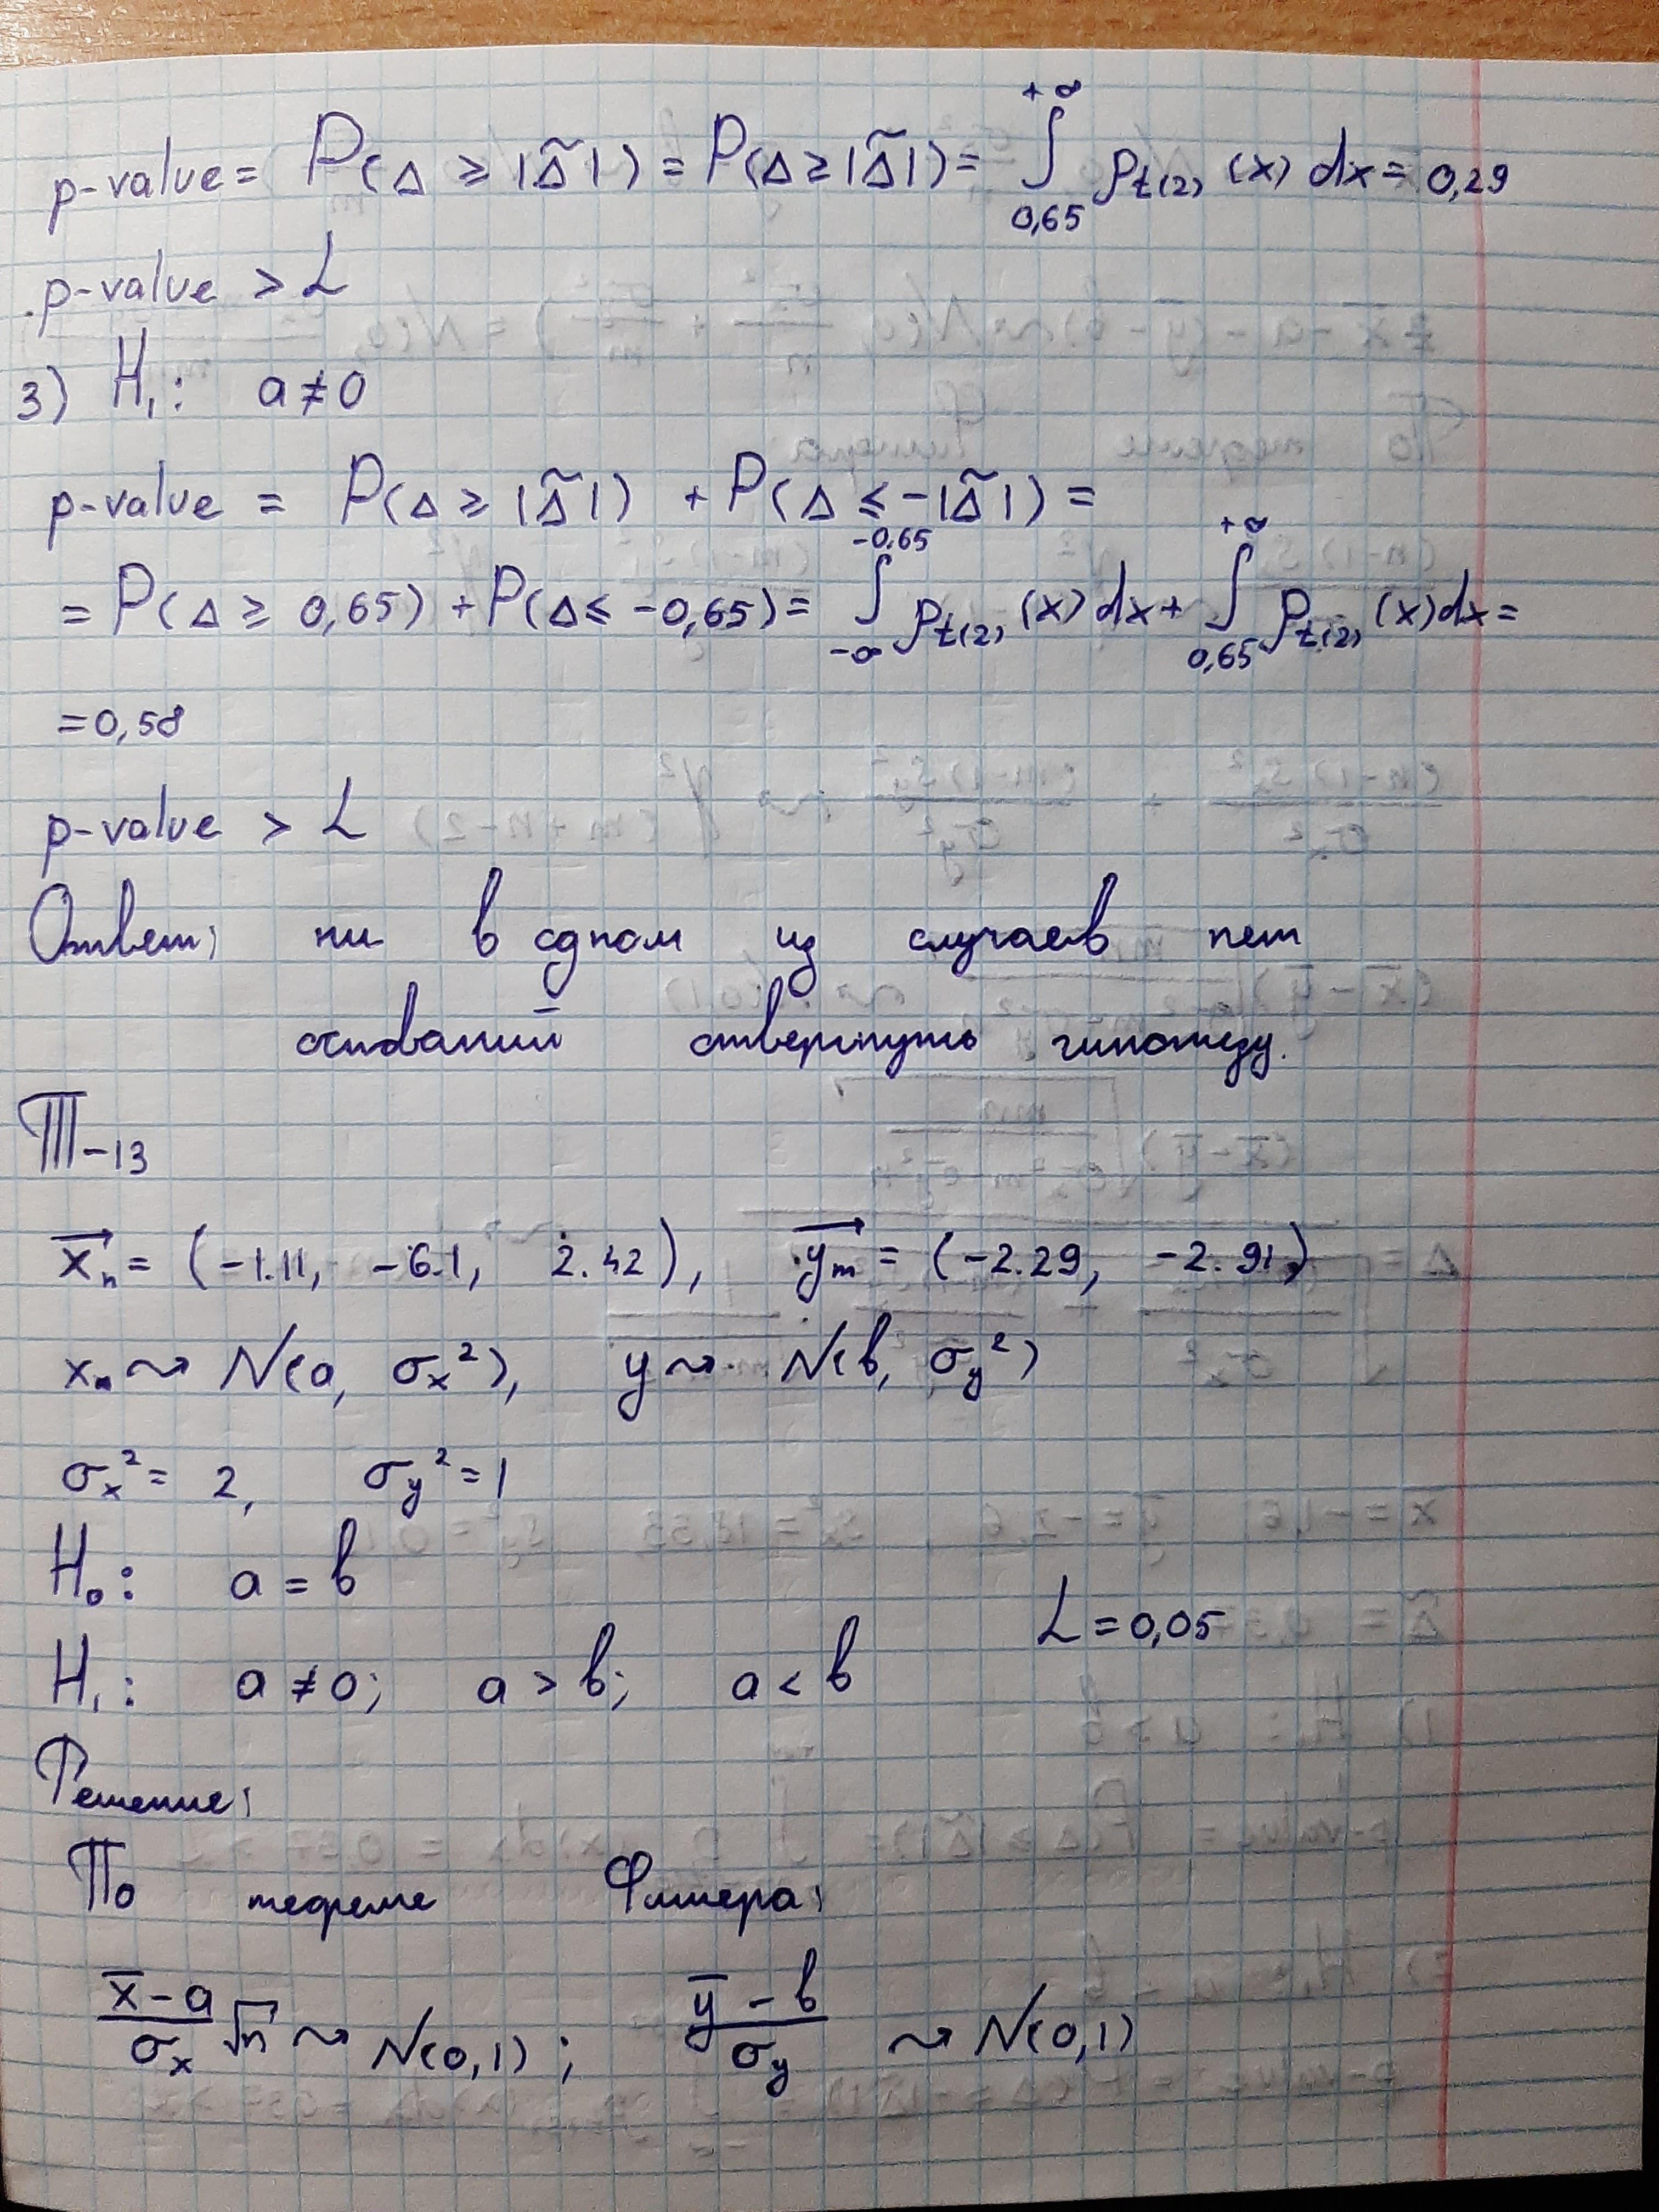 p-value = P(Δ ≥ |Δ̃|) = P(Δ ≥ |Δ̃|) = ∫_{0,65}^{+∞} ρ_{t(2)} (x) dx = 0,29
p-value > L
3) H₁: a ≠ 0
p-value = P(Δ ≥ |Δ̃|) + P(Δ ≤ -|Δ̃|) =
= P(Δ ≥ 0,65) + P(Δ ≤ -0,65) = ∫_{-∞}^{-0,65} ρ_{t(2)} (x) dx + ∫_{0,65}^{+∞} ρ_{t(2)} (x) dx =
= 0,58
p-value > L
Ответ: ни в одном из случаев нет
оснований отвергнуть гипотезу.
T-13
x⃗ₙ = (-1.11, -6.1, 2.42), y⃗ₘ = (-2.29, -2.91)
xₙ ⇝ N(a, σₓ²), y ⇝ N(b, σ_y²)
σₓ² = 2, σ_y² = 1
H₀: a = b
L = 0,05
H₁: a ≠ 0; a > b; a < b
Решение:
По теореме Фишера:
(x̄ - a)/σₓ √n ⇝ N(0,1); (ȳ - b)/σ_y ⇝ N(0,1)